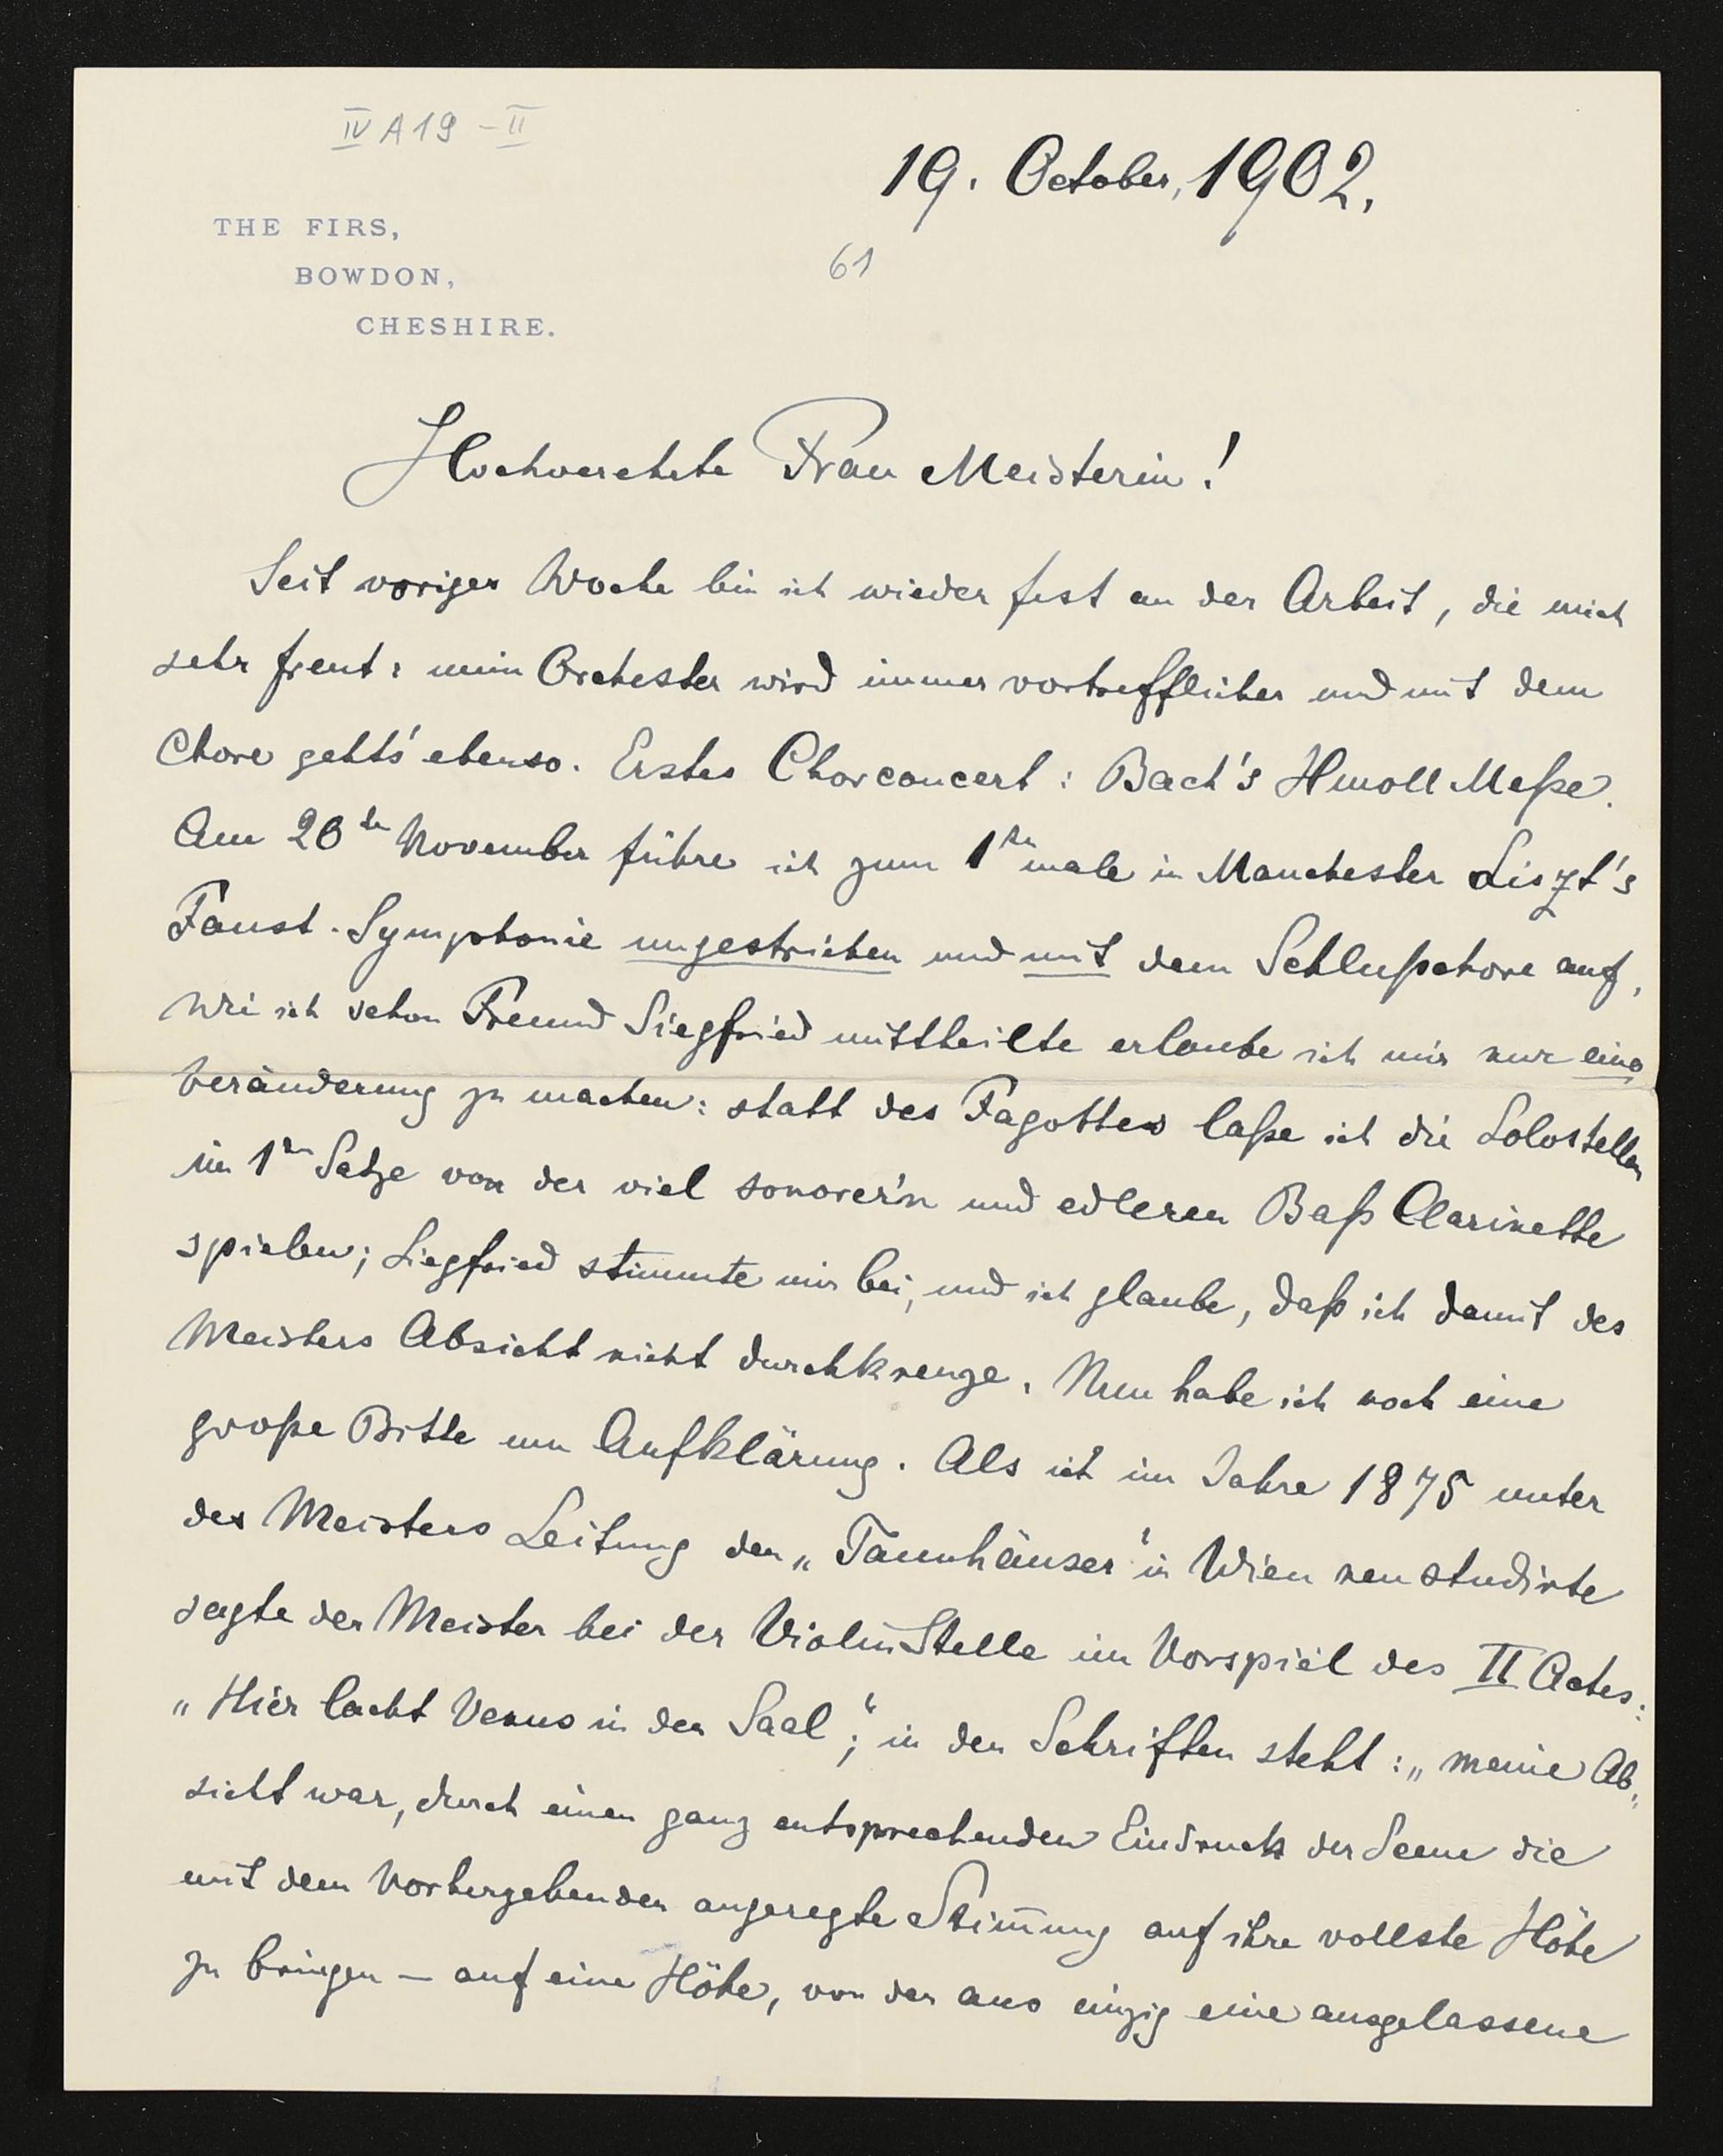 IV A 19 - II
19. October, 1902.
THE FIRS,
BOWDON,
CHESHIRE.
61
Hochverehrte Frau Meisterin!
Seit voriger Woche bin ich wieder fest an der Arbeit, die mich
sehr freut: mein Orchester wird immer vortrefflicher und mit dem
Chore geht's ebenso. Erstes Chorconcert: Bach's Hmoll Meße.
Am 20ten November führe ich zum 1ten male in Manchester Liszt's
Faust-Symphonie ungestrichen und mit dem Schlußchore auf,
Wie ich schon Freund Siegfried mittheilte erlaube ich mir nur eine
Veränderung zu machen: statt des Fagottes laße ich die Solostellen
im 1ten Satze von der viel sonorer'n und edleren Baß Clarinette
spielen; Siegfried stimmte mir bei, und ich glaube, daß ich damit des
Meisters Absicht nicht durchkreuze. Nun habe ich noch eine
große Bitte um Aufklärung. Als ich im Jahre 1875 unter
des Meisters Leitung den „Tannhäuser“ in Wien neu studirte
sagte der Meister bei der Violin Stelle im Vorspiel des II Actes:
„Hier lacht Venus in den Saal“; in den Schriften steht: „meine Ab„
sicht war, durch einen ganz entsprechenden Eindruck der Scene die
mit dem Vorhergehenden angeregte Stim̄ung auf ihre vollste Höhe
zu bringen — auf eine Höhe, von der aus einzig eine ausgelassene